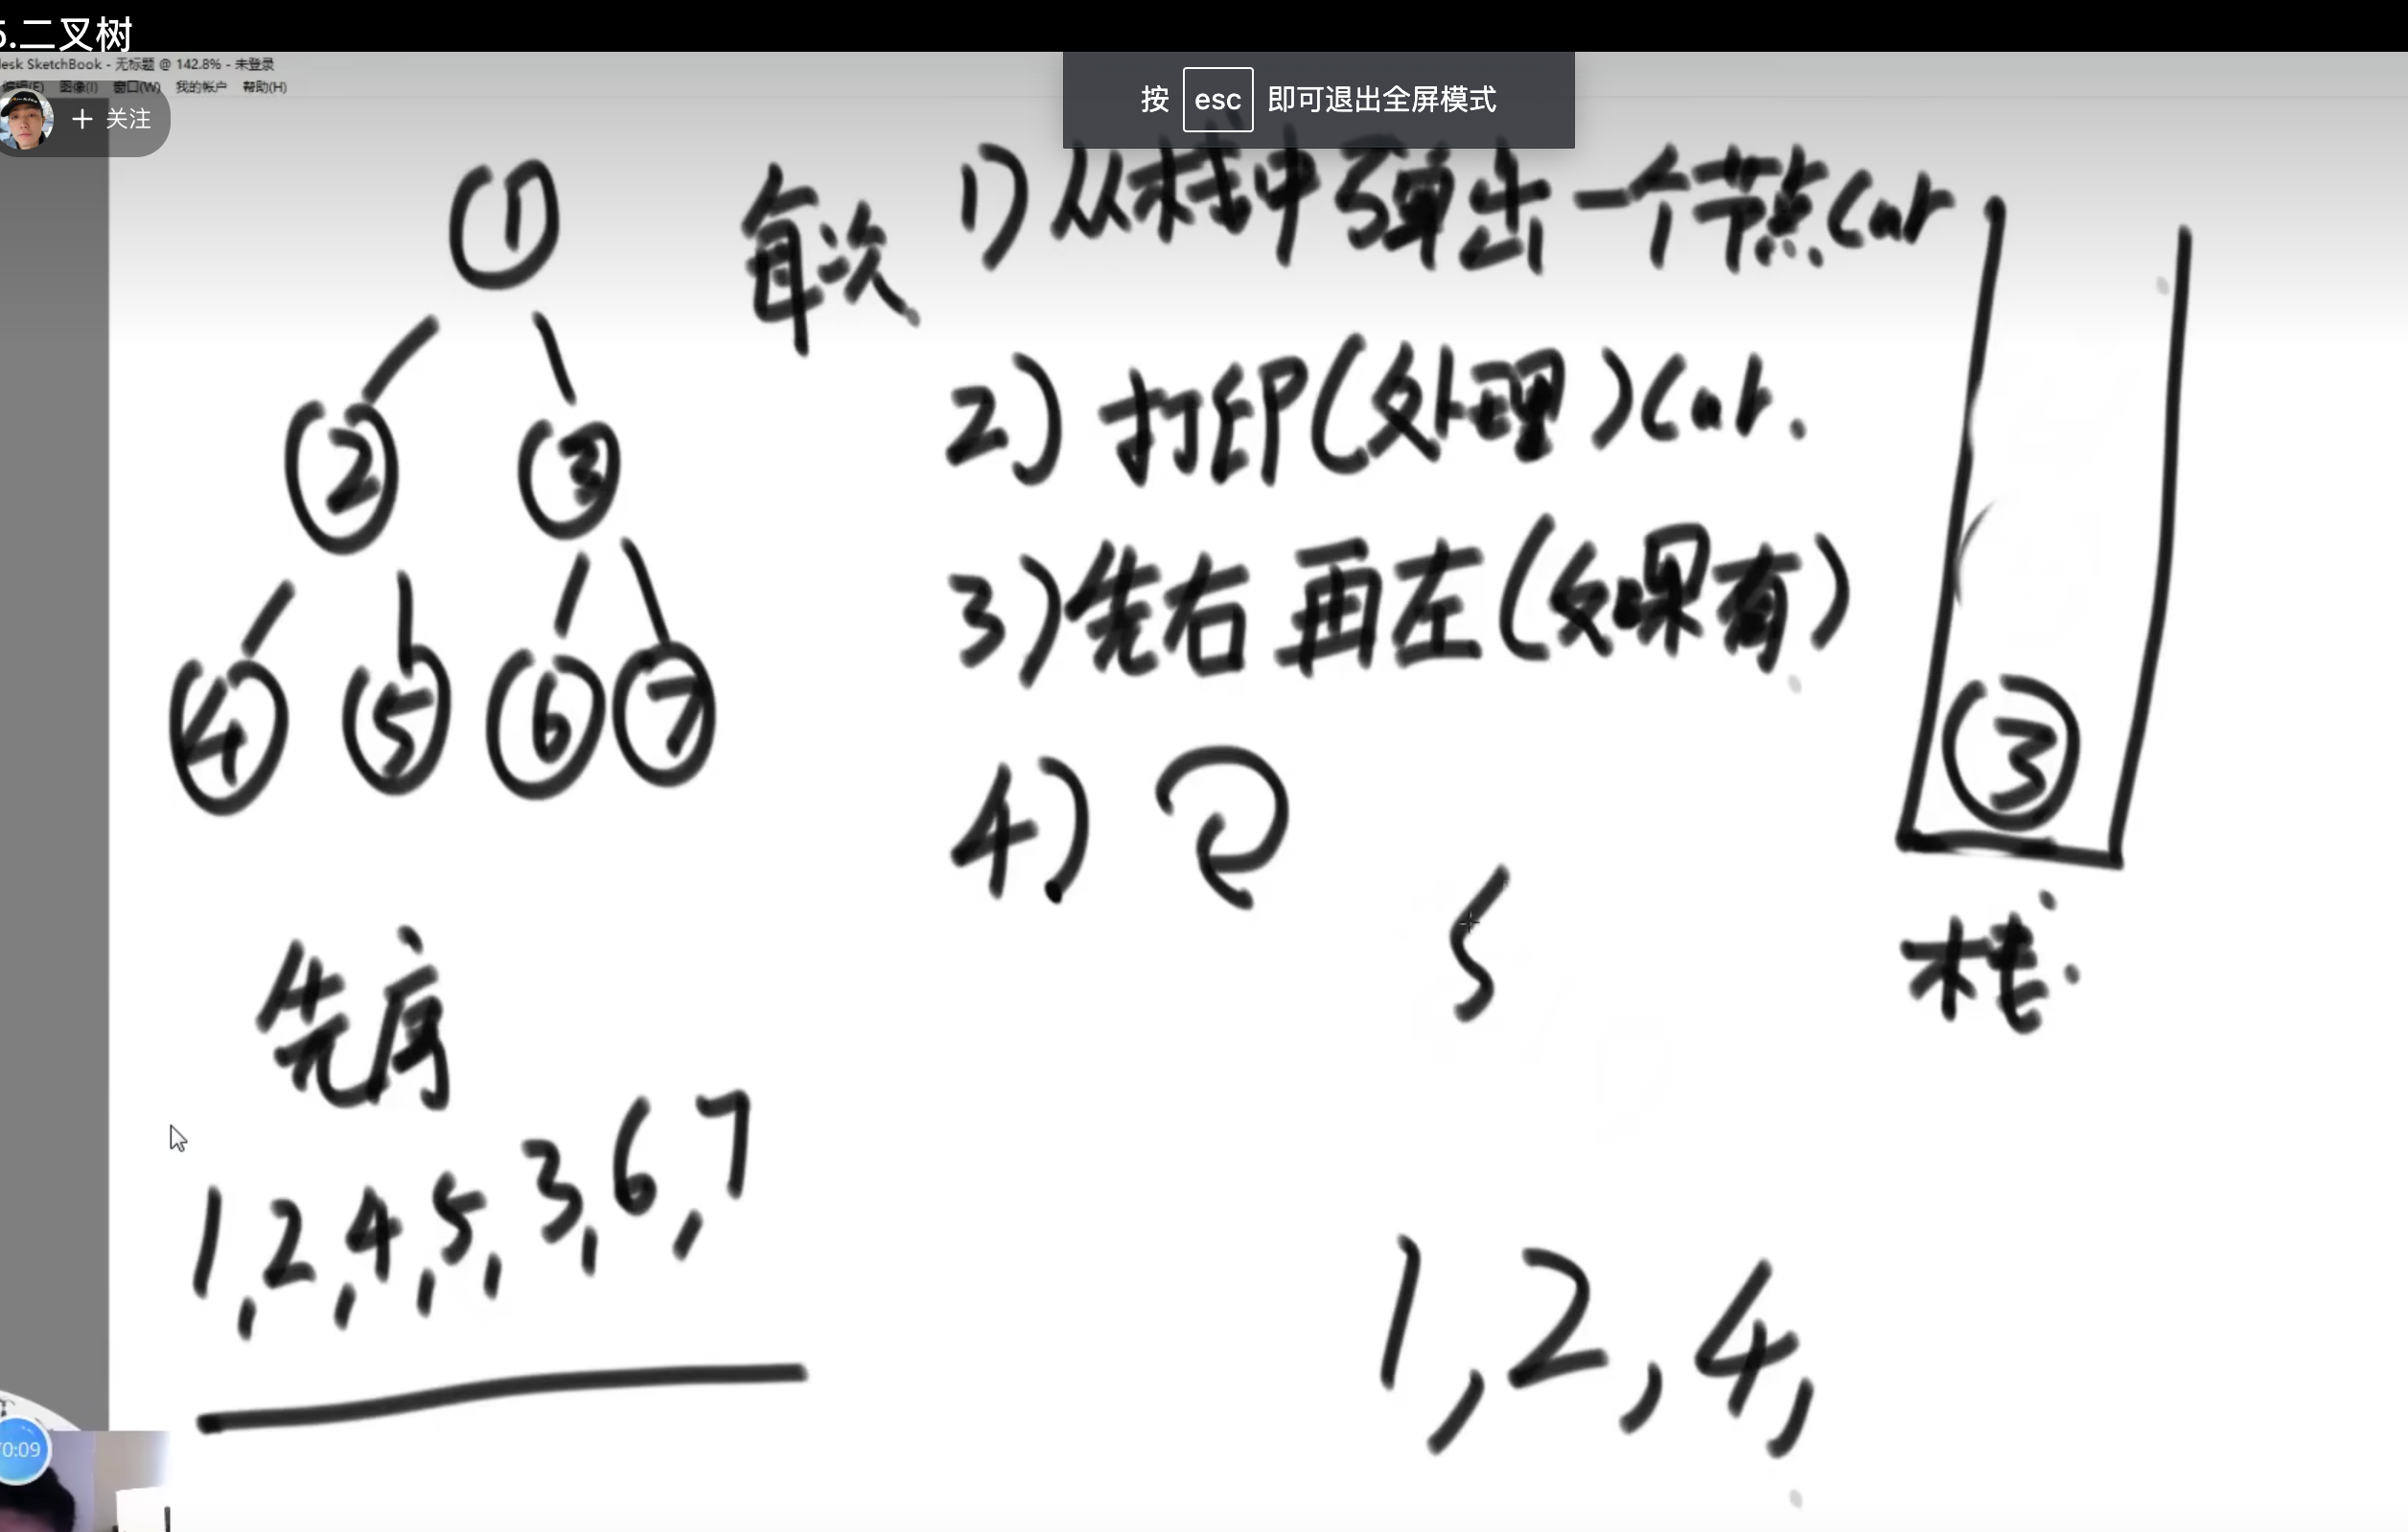 5.二叉树
desk SketchBook - 无标题 @ 142.8% - 未登录
编辑(E) 图像(I) 窗口(W) 我的帐户 帮助(H)
+ 关注
按 esc 即可退出全屏模式
1
2 3
4 5 6 7
每次
1) 从栈中弹出一个节点cur
2) 打印(处理)cur.
3) 先右再左(如果有)
4)
5
3
栈
先序
1,2,4,5,3,6,7
1,2,4,
0:09